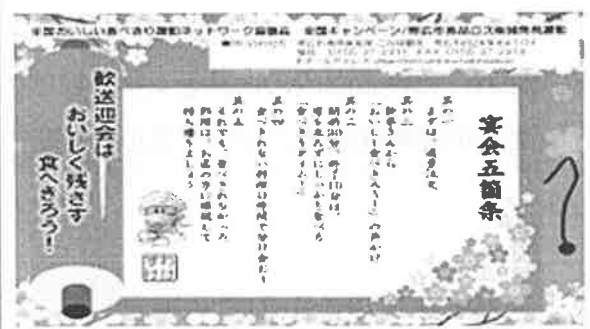 全国おいしい食べきり運動ネットワーク協議会 全国キャンペーン/帯広市食品ロス削減推進運動
宴会五箇条
其の一
まずは、適量注文
其の二
幹事さんから
「おいしく食べきろう！」の声かけ
其の三
開始30分、終了10分は、
席を立たずにしっかり食べる
「食べきりタイム！」
其の四
食べきれない料理は仲間で分け合おう
其の五
それでも、食べきれなかった
料理は、お店の方に確認して
持ち帰りましょう
歓送迎会は
おいしく残さず
食べきろう！